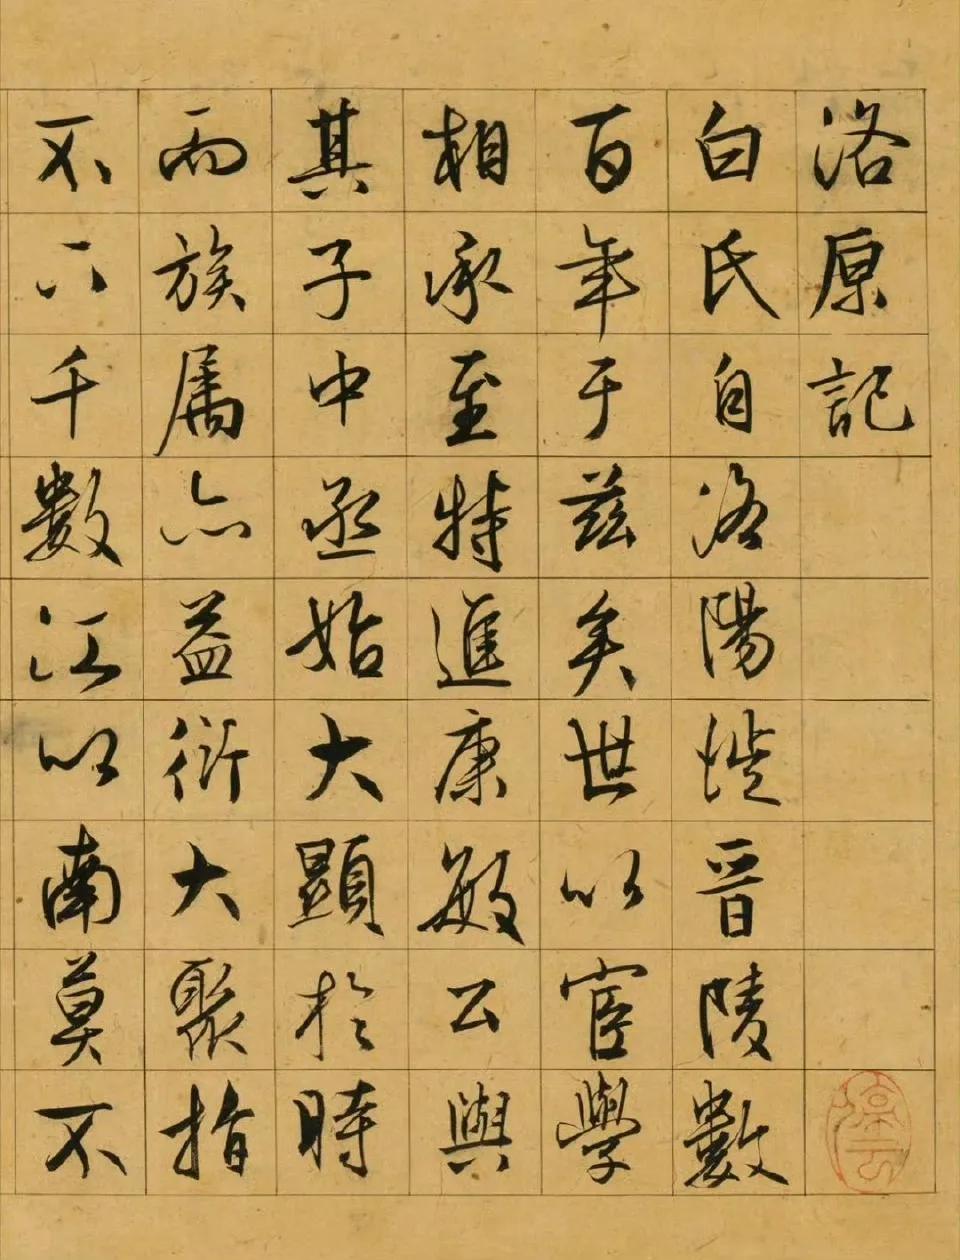 洛原記
白氏自洛陽徙晉陵數
百年于茲矣世以宦學
相承至特進康敏公與
其子中丞始大顯於時
而族屬亦益衍大聚指
不下千數江以南莫不